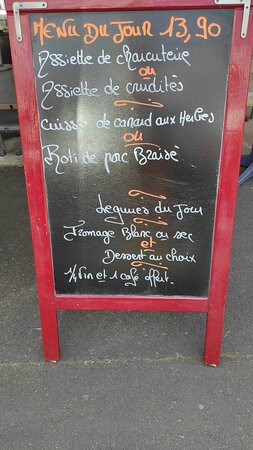 MENU DU JOUR 13,90
Assiette de charcuterie
ou
Assiette de crudités
Cuisse de canard aux Herbes
ou
Roti de porc Braisé
Legumes du Jour
Fromage Blanc ou sec
et
Dessert au choix
¼ Vin et 1 café offert.